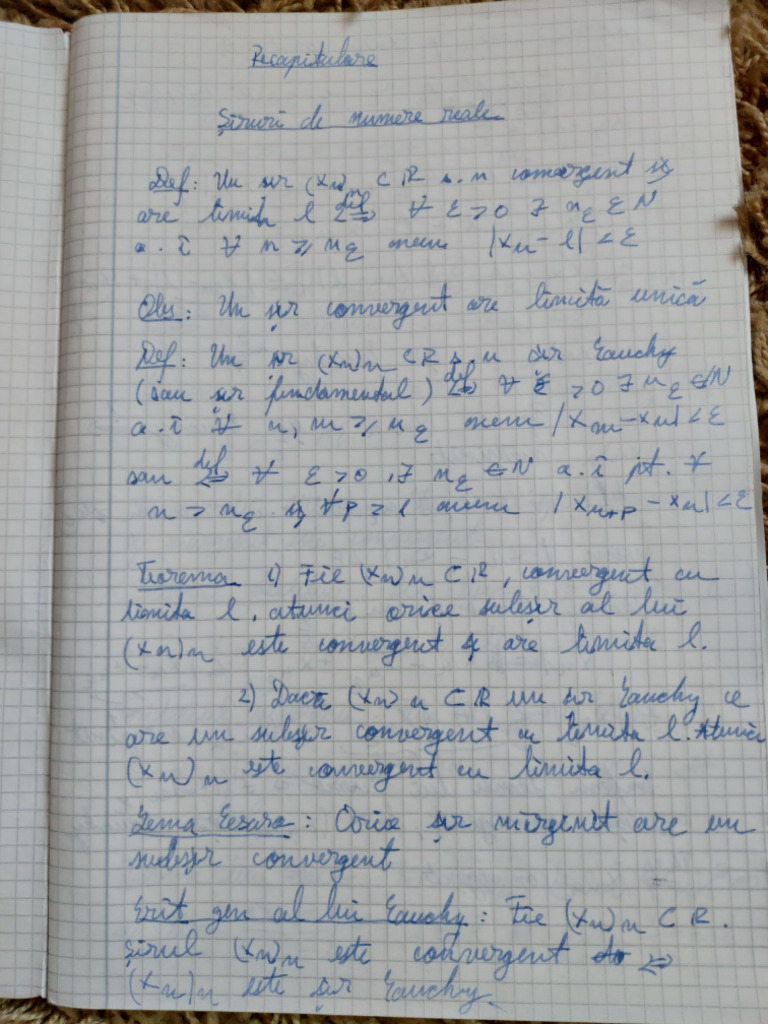 Recapitulare
Șiruri de numere reale
Def: Un șir (xn)n ⊂ ℝ s.n convergent și
are limita l ⇔def ∀ ε > 0 ∃ nε ∈ ℕ
a.î ∀ n ≥ nε avem |xn - l| < ε
Obs: Un șir convergent are limită unică
Def: Un șir (xn)n ⊂ ℝ s.n șir Cauchy
(sau șir fundamental) ⇔def ∀ ε > 0 ∃ nε ∈ ℕ
a.î ∀ n, m ≥ nε avem |xm - xn| < ε
sau ⇔def ∀ ε > 0, ∃ nε ∈ ℕ a.î pt. ∀
n > nε și ∀ p ≥ 1 avem |xn+p - xn| < ε
Teorema 1) Fie (xn)n ⊂ ℝ, convergent cu
limita l. atunci orice subșir al lui
(xn)n este convergent și are limita l.
2) Dacă (xn)n ⊂ ℝ un șir Cauchy ce
are un subșir convergent cu limita l. Atunci
(xn)n este convergent cu limita l.
Lema Cesaro: Orice șir mărginit are un
subșir convergent
Crit gen al lui Cauchy: Fie (xn)n ⊂ ℝ.
Șirul (xn)n este convergent ⇔
(xn)n este șir Cauchy.